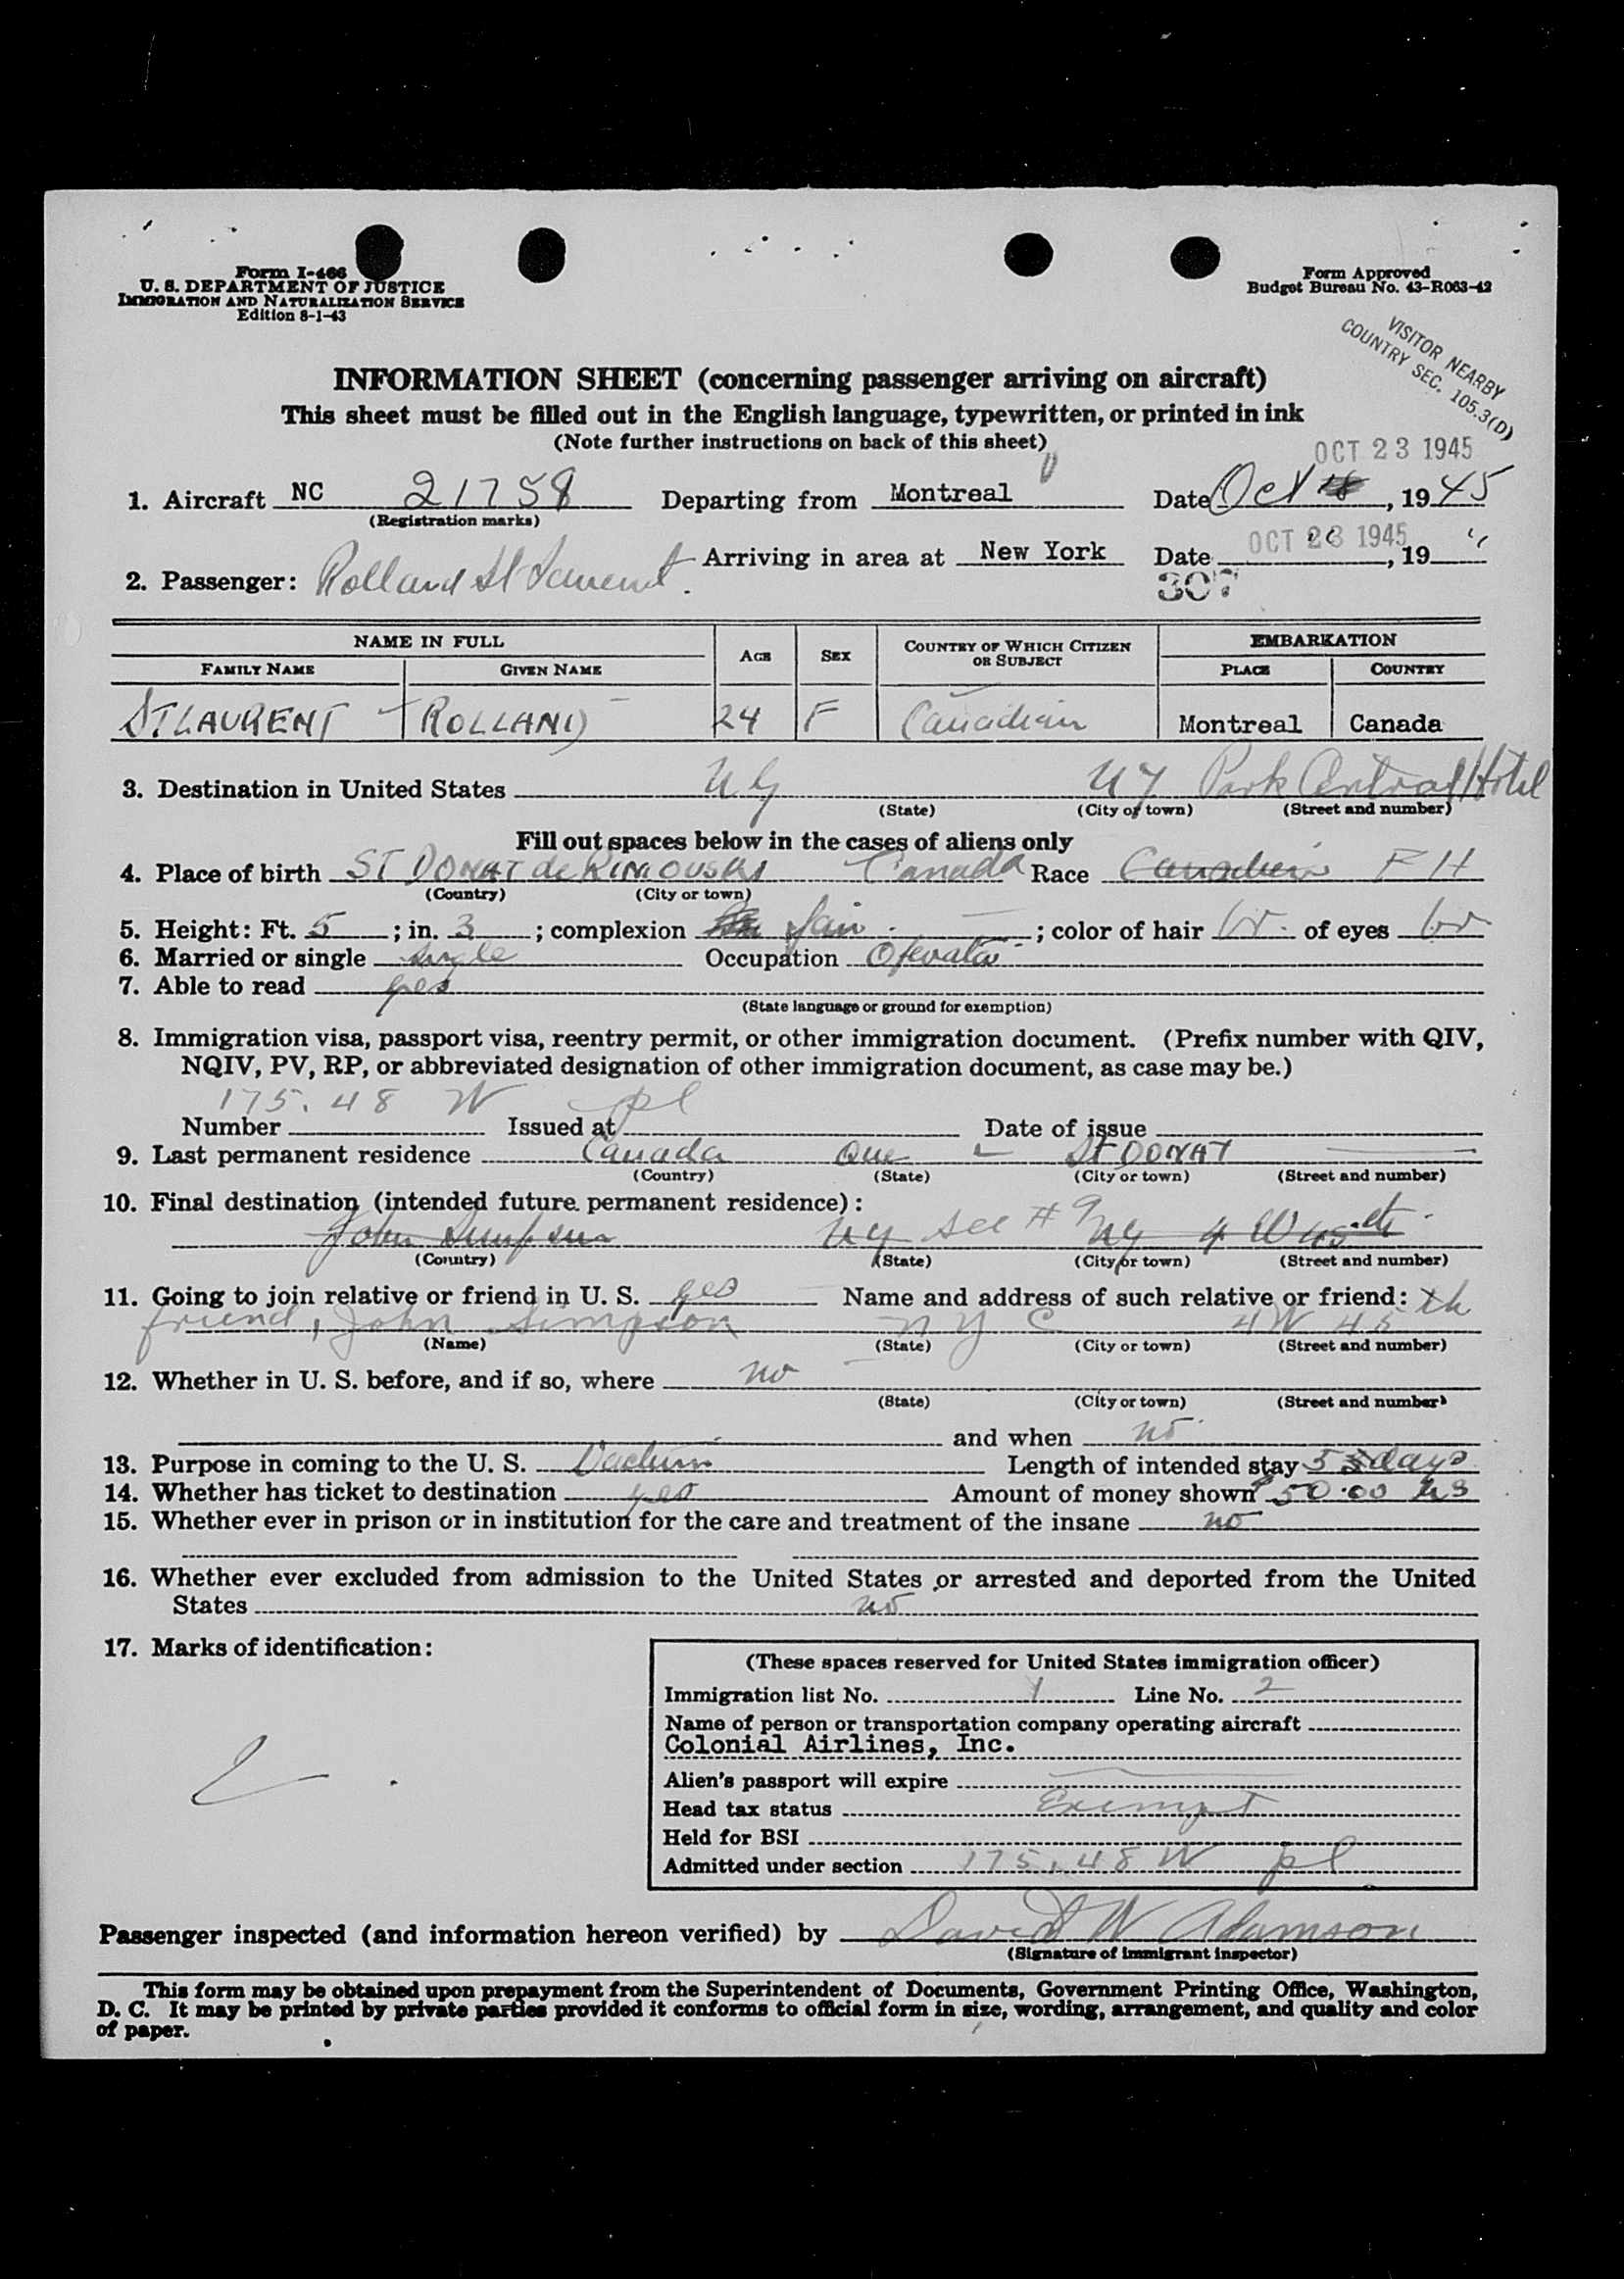 Form I-466
U. S. DEPARTMENT OF JUSTICE
IMMIGRATION AND NATURALIZATION SERVICE
Edition 8-1-43
Form Approved
Budget Bureau No. 43-R063-42
VISITOR NEARBY
COUNTRY SEC. 105.3(D)
INFORMATION SHEET (concerning passenger arriving on aircraft)
This sheet must be filled out in the English language, typewritten, or printed in ink
(Note further instructions on back of this sheet)
OCT 23 1945
1. Aircraft NC 21758 Departing from Montreal Date Oct 18, 1945
(Registration marks)
Arriving in area at New York Date OCT 23 1945, 19 "
2. Passenger: Rolland St Laurent.
307
NAME IN FULL AGE SEX COUNTRY OF WHICH CITIZEN OR SUBJECT EMBARKATION
FAMILY NAME GIVEN NAME PLACE COUNTRY
ST LAURENT ROLLAND 24 F Canadian Montreal Canada
3. Destination in United States NY NY Park Central Hotel
(State) (City or town) (Street and number)
Fill out spaces below in the cases of aliens only
4. Place of birth ST DONAT de RIMOUSKI Canada Race Canadien F H
(Country) (City or town)
5. Height: Ft. 5; in. 3; complexion fair; color of hair br. of eyes br
6. Married or single single Occupation Operator
7. Able to read yes
(State language or ground for exemption)
8. Immigration visa, passport visa, reentry permit, or other immigration document. (Prefix number with QIV,
NQIV, PV, RP, or abbreviated designation of other immigration document, as case may be.)
175.48 W pl
Number Issued at Date of issue
9. Last permanent residence Canada Que St DONAT
(Country) (State) (City or town) (Street and number)
10. Final destination (intended future permanent residence):
John Simpson NY see #9 NY 4 W 45 th
(Country) (State) (City or town) (Street and number)
11. Going to join relative or friend in U. S. yes Name and address of such relative or friend:
friend, John Simpson N Y C 4 W 45 th
(Name) (State) (City or town) (Street and number)
12. Whether in U. S. before, and if so, where no
(State) (City or town) (Street and number)
and when no
13. Purpose in coming to the U. S. Length of intended stay 5 days
14. Whether has ticket to destination yes Amount of money shown $50.00 US
15. Whether ever in prison or in institution for the care and treatment of the insane no
16. Whether ever excluded from admission to the United States or arrested and deported from the United
States no
17. Marks of identification:
(These spaces reserved for United States immigration officer)
Immigration list No. 1 Line No. 2
Name of person or transportation company operating aircraft
Colonial Airlines, Inc.
Alien's passport will expire
Head tax status Exempt
Held for BSI
Admitted under section 175.48 W pl
Passenger inspected (and information hereon verified) by David W Adamson
(Signature of immigrant inspector)
This form may be obtained upon prepayment from the Superintendent of Documents, Government Printing Office, Washington,
D. C. It may be printed by private parties provided it conforms to official form in size, wording, arrangement, and quality and color
of paper.